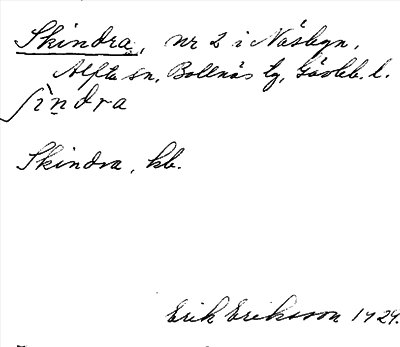 Skindra, nr 2 i Näsbyn,
Alfta sn, Bollnäs tg, Gävleb. l.
ʃìndra
Skindra, kb.
Erik Eriksson 1924.